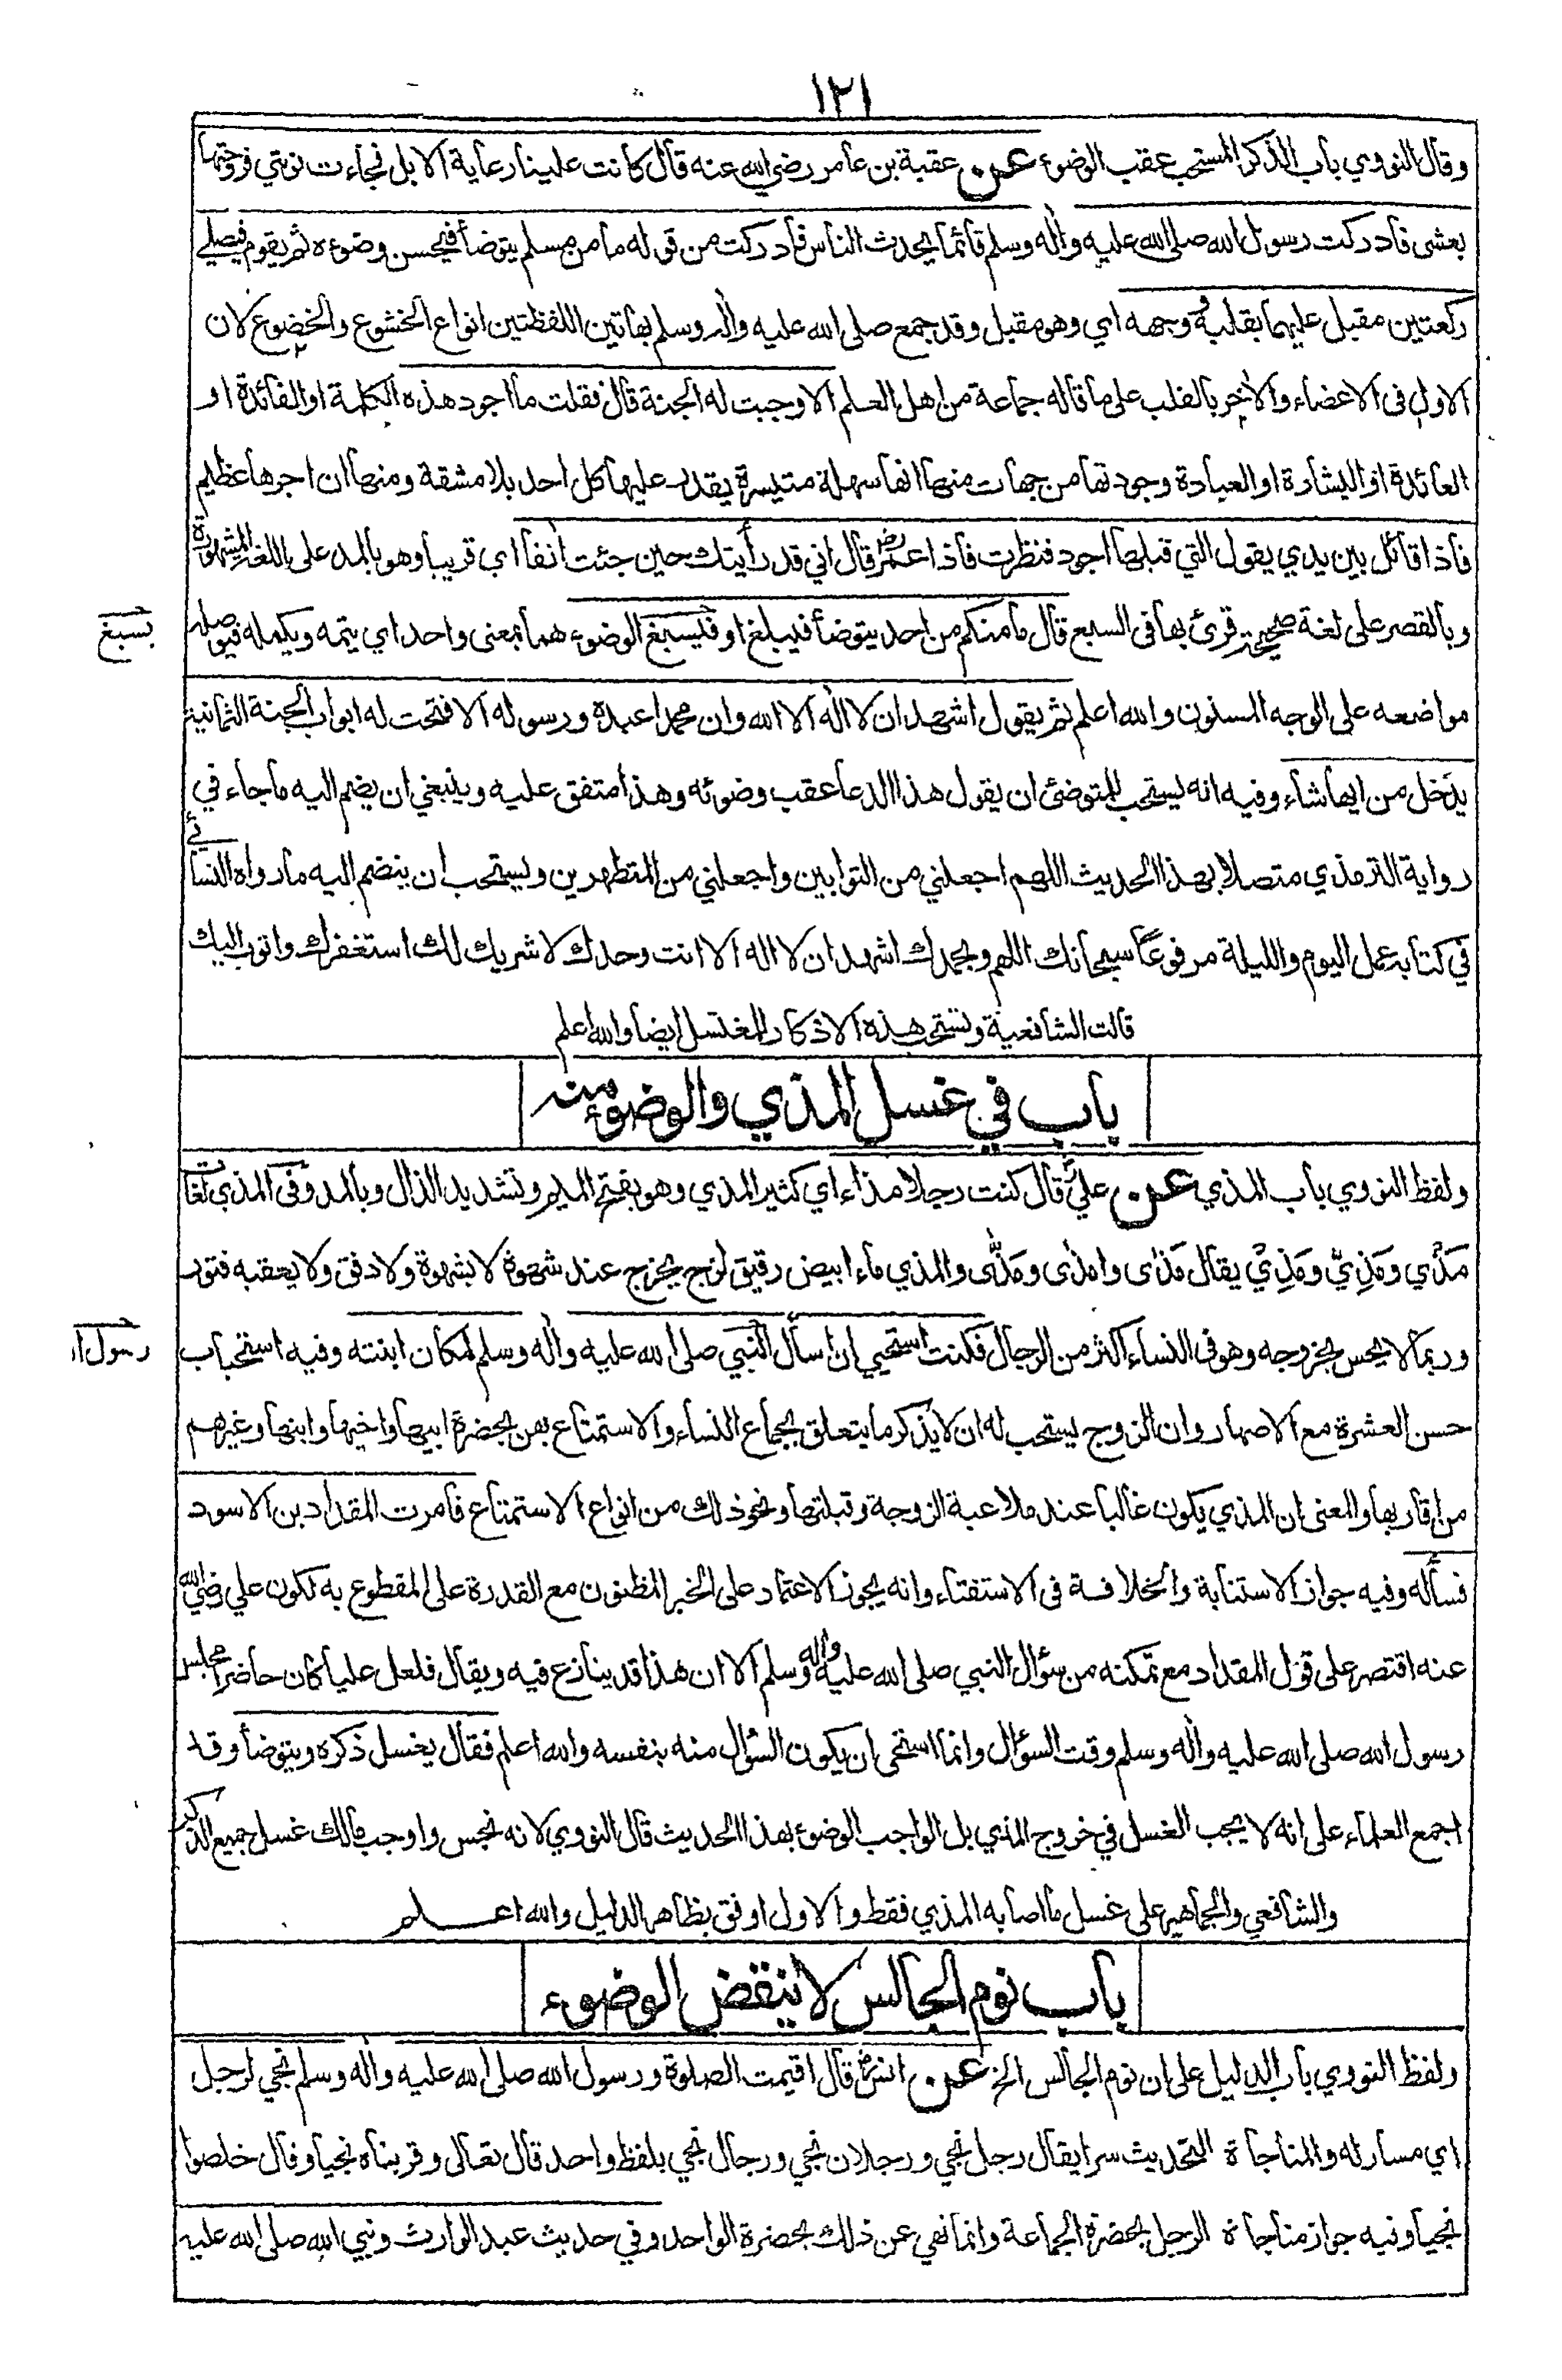 ١٢١
وقال النووي باب الذكر المستحب عقب الوضوء عن عقبة بن عامر رضي الله عنه قال كانت علينا رعاية الابل فجاءت نوبتي فروحتها
بعشي فادركت رسول الله صلى الله عليه واٰله وسلم قائما يحدث الناس فادركت من قوله ما من مسلم يتوضأ فيحسن وضوءه ثم يقوم فيصلي
ركعتين مقبل عليهما بقلبه ووجهه اي وهو مقبل وقد جمع صلى الله عليه واٰله وسلم بهاتين اللفظتين انواع الخشوع والخضوع لان
الاول في الاعضاء والاٰخر بالقلب على ما قاله جماعة من اهل العلم الا وجبت له الجنة قال فقلت ما اجود هذه الكلمة او الفائدة او
العائدة او البشارة او العبادة وجودتها من جهات منها انها سهلة متيسرة يقدر عليها كل احد بلا مشقة ومنها ان اجرها عظيم
فاذا قائل بين يدي يقول التي قبلها اجود فنظرت فاذا عمر رض قال اني قد رأيتك حين جئت اٰنفا اي قريبا وهو بالمد على اللغة المشهورة
وبالقصر على لغة صحيحة قرئ بها في السبع قال ما منكم من احد يتوضأ فيبلغ او فيسبغ الوضوء هما بمعنى واحد اي يتمه ويكمله فيوصله
يسبغ
مواضعه على الوجه المسنون والله اعلم ثم يقول اشهد ان لا اله الا الله وان محمدا عبده ورسوله الا فتحت له ابواب الجنة الثمانية
يدخل من ايها شاء وفيه انه يستحب للمتوضئ ان يقول هذا الدعا عقب وضوئه وهذا متفق عليه وينبغي ان يضم اليه ما جاء في
رواية الترمذي متصلا بهذا الحديث اللهم اجعلني من التوابين واجعلني من المتطهرين ويستحب ان ينضم اليه ما رواه النسائي
في كتابه عمل اليوم والليلة مرفوعًا سبحانك اللهم وبحمدك اشهد ان لا اله الا انت وحدك لا شريك لك استغفرك واتوب اليك
قالت الشافعية وتستحب هذه الاذكار للمغتسل ايضا والله اعلم
باب في غسل المذي والوضوء منه
ولفظ النووي باب المذي عن علي رض قال كنت رجلا مذاء اي كثير المذي وهو بفتح الميم وتشديد الذال وبالمد وفي المذي لغات
مَذْي ومَذِيّ ومَذِيْ يقال مَذٰى وامذٰى ومَذّٰى والمذي ماء ابيض رقيق لزج يخرج عند شهوة لا بشهوة ولا دفق ولا يعقبه فتور
وربما لا يحس بخروجه وهو في النساء اكثر من الرجال فكنت استحيي ان اسأل النبي صلى الله عليه واٰله وسلم لمكان ابنته وفيه استحباب
رسول ا
حسن العشرة مع الاصهار وان الزوج يستحب له ان لا يذكر ما يتعلق بجماع النساء والاستمتاع بهن بحضرة ابيها واخيها وابنها وغيرهم
من اقاربها والمعنى ان المذي يكون غالبا عند ملاعبة الزوجة وقبلتها ونحو ذلك من انواع الاستمتاع فامرت المقداد بن الاسود
فسأله وفيه جواز الاستنابة والخلافة في الاستفتاء وانه يجوز الاعتماد على الخبر المظنون مع القدرة على المقطوع به لكون علي رضي الله
عنه اقتصر على قول المقداد مع تمكنه من سؤال النبي صلى الله عليه واٰله وسلم الا ان هذا قد ينازع فيه ويقال فلعل عليا كان حاضرا مجلس
رسول الله صلى الله عليه واٰله وسلم وقت السؤال وانما استحى ان يكون السؤال منه بنفسه والله اعلم فقال يغسل ذكره ويتوضأ وقد
اجمع العلماء على انه لا يجب الغسل في خروج المذي بل الواجب الوضوء بهذا الحديث قال النووي لانه نجس واوجب مالك غسل جميع الذكر
والشافعي والجماهير على غسل ما اصابه المذي فقط والاول اوفق بظاهر الدليل والله اعلم
باب نوم الجالس لا ينقض الوضوء
ولفظ النووي باب الدليل على ان نوم الجالس الخ عن انس رض قال اقيمت الصلوة ورسول الله صلى الله عليه واٰله وسلم نجي لرجل
اي مسار له والمناجاة التحديث سرا يقال رجل نجي ورجلان نجي ورجال نجي بلفظ واحد قال تعالى وقربناه نجيا وقال خلصوا
نجيا وفيه جواز مناجاة الرجل بحضرة الجماعة وانما نهي عن ذلك بحضرة الواحد وفي حديث عبد الوارث ونبي الله صلى الله عليه